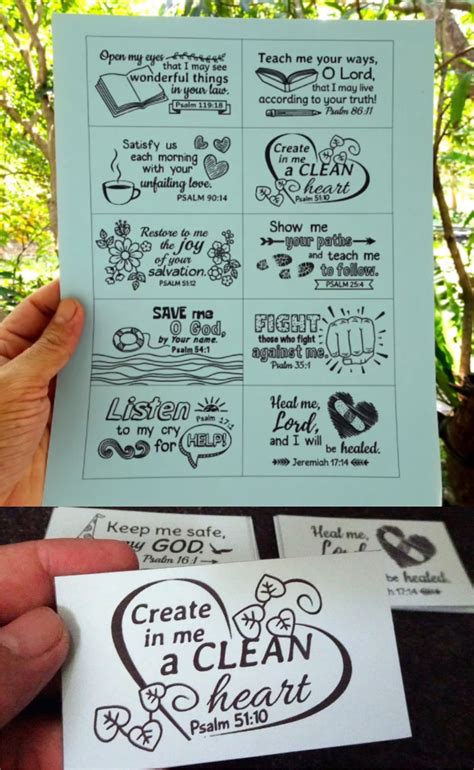 Open my eyes
that I may see
wonderful things
in your law.
Psalm 119:18
Teach me your ways,
O Lord,
that I may live
according to your truth!
Psalm 86:11
Satisfy us
each morning
with your
unfailing love.
PSALM 90:14
Create
in me
a CLEAN
heart
Psalm 51:10
Restore to me
the joy
of your
salvation.
PSALM 51:12
Show me
your paths
and teach me
to follow.
PSALM 25:4
SAVE me
O God,
by Your name.
Psalm 54:1
FIGHT
those who fight
against me.
Psalm 35:1
Listen
Psalm 17:1
to my cry
for HELP!
Heal me,
Lord,
and I will
be healed.
Jeremiah 17:14
Keep me safe,
my GOD.
Psalm 16:1
Heal me,
be healed.
17:14
Create
in me
a CLEAN
heart
Psalm 51:10